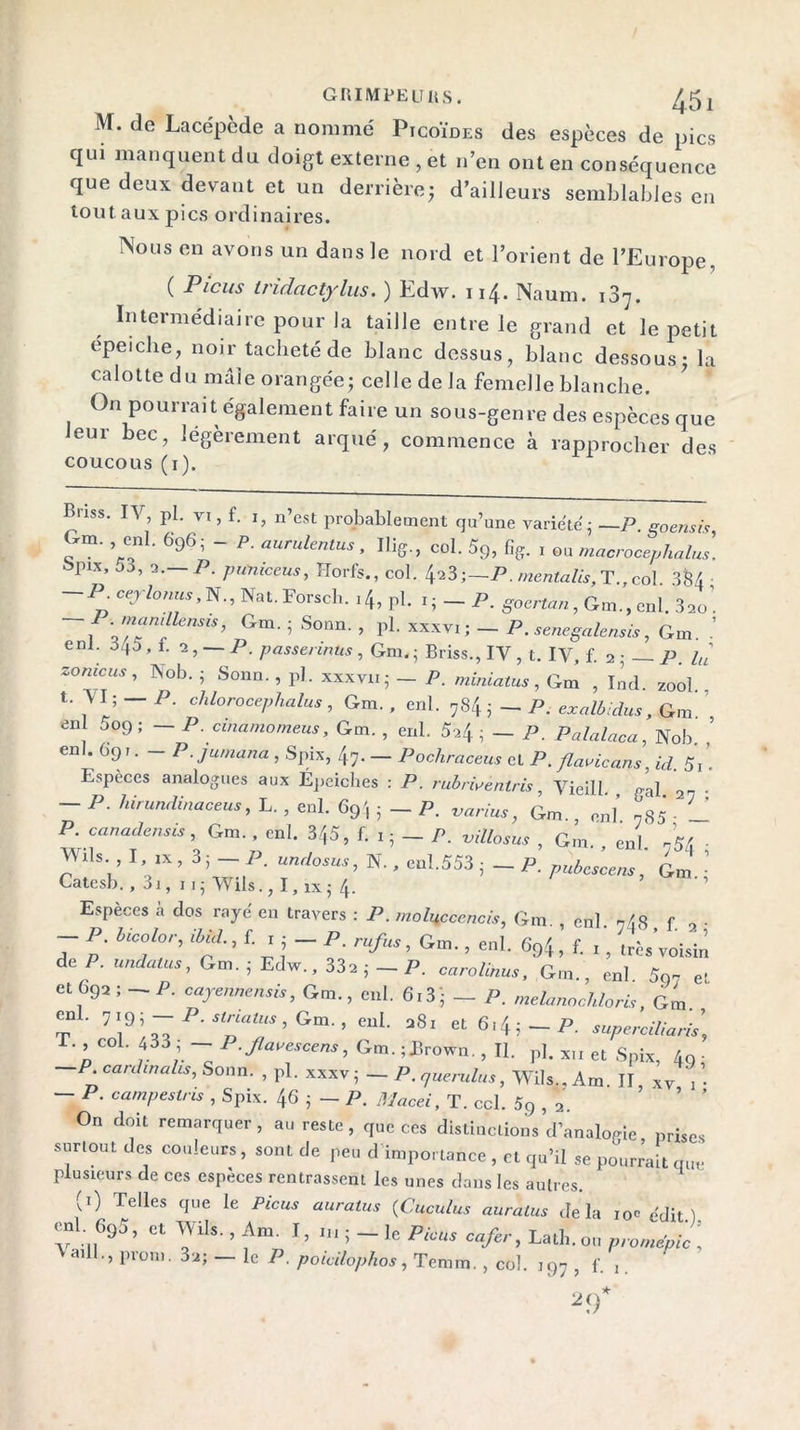 GRIMPEURS. 451
M. de Lacépède a nommé PICOÏDES des espèces de pics
qui manquent du doigt externe, et n'en ont en conséquence
que deux devant et un derrière; d'ailleurs semblables en
tout aux pics ordinaires.
Nous en avons un dans le nord et l'orient de l'Europe,
( Picus tridactylus. ) Edw. 114. Naum. 137.
Intermédiaire pour la taille entre le grand et le petit
épeiche, noir tacheté de blanc dessus, blanc dessous; la
calotte du mâle orangée; celle de la femelle blanche.
On pourrait également faire un sous-genre des espèces que
leur bec, légèrement arqué, commence à rapprocher des
coucous (1).
Briss. IV, pl. VI, f. 1, n'est probablement qu'une variété; —P. goensis,
Gm., enl. 696; — P. aurulentus, Ilig., col. 59, fig. 1 ou macrocephalus.
Spix, 53, 2.— P. puniceus, Horfs., col. 423;—P. mentalis, T., col. 384;
—P. ceylonus, N., Nat. Forsch. 14, pl. 1; — P. goertan, Gm., enl. 320;
— P. manillensis, Gm.; Sonn., pl. XXXVI; — P. senegalensis, Gm.;
enl. 345, f. 2, — P. passerinus, Gm.; Briss., IV, t. IV, f. 2; — P. lu
zonicus, Nob.; Sonn., pl. XXXVII; — P. miniatus, Gm, Ind. zool.,
t. VI; — P. chlorocephalus, Gm., enl. 784; — P. exalbidus, Gm.,
enl 509; — P. cinamomeus, Gm., enl. 524; — P. Palalaca, Nob.,
enl. 691. — P. jumana, Spix, 47. — P. ochraceus et P. flavicans, id. 51.
Espèces analogues aux Épeiches : P. rubriventris, Vieill., gal. 27;
— P. hirundinaceus, L., enl. 694; — P. varius, Gm., enl. 785; —
P. canadensis, Gm., enl. 345, f. 1; — P. villosus, Gm., enl. 754;
Wils., I, IX, 3; — P. undosus, N., enl. 553; — P. pubescens, Gm.;
Catesb., 31, 11; Wils., I, IX; 4.
Espèces à dos rayé en travers : P. moluccencis, Gm., enl. 748, f. 2;
— P. bicolor, ibid., f. 1; — P. rufus, Gm., enl. 694, f. 1, très voisin
de P. undatus, Gm.; Edw., 332; — P. carolinus, Gm., enl. 597 et
et 692; — P. cayennensis, Gm., enl. 613; — P. melanochloris, Gm.,
enl. 719; — P. striatus, Gm., enl. 281 et 614; — P. superciliaris,
T., col. 433; — P. flavescens, Gm.; Brown., Il. pl. XII et Spix, 49;
—P. cardinalis, Sonn., pl. XXXV; — P. querulus, Wils., Am. II, XV, 1;
— P. campestris, Spix. 46; — P. Macei, T. ccl. 59, 2.
On doit remarquer, au reste, que ces distinctions d'analogie, prises
surtout des couleurs, sont de peu d'importance, et qu'il se pourrait que
plusieurs de ces espèces rentrassent les unes dans les autres.
(1) Telles que le Picus auratus (Cuculus auratus de la 10e édit.),
enl. 695, et Wils., Am. I, III; — le Picus cafer, Lath. ou promépic,
Vaill., prom. 32; — le P. poicilophos, Temm., col. 197, f. 1.
29*